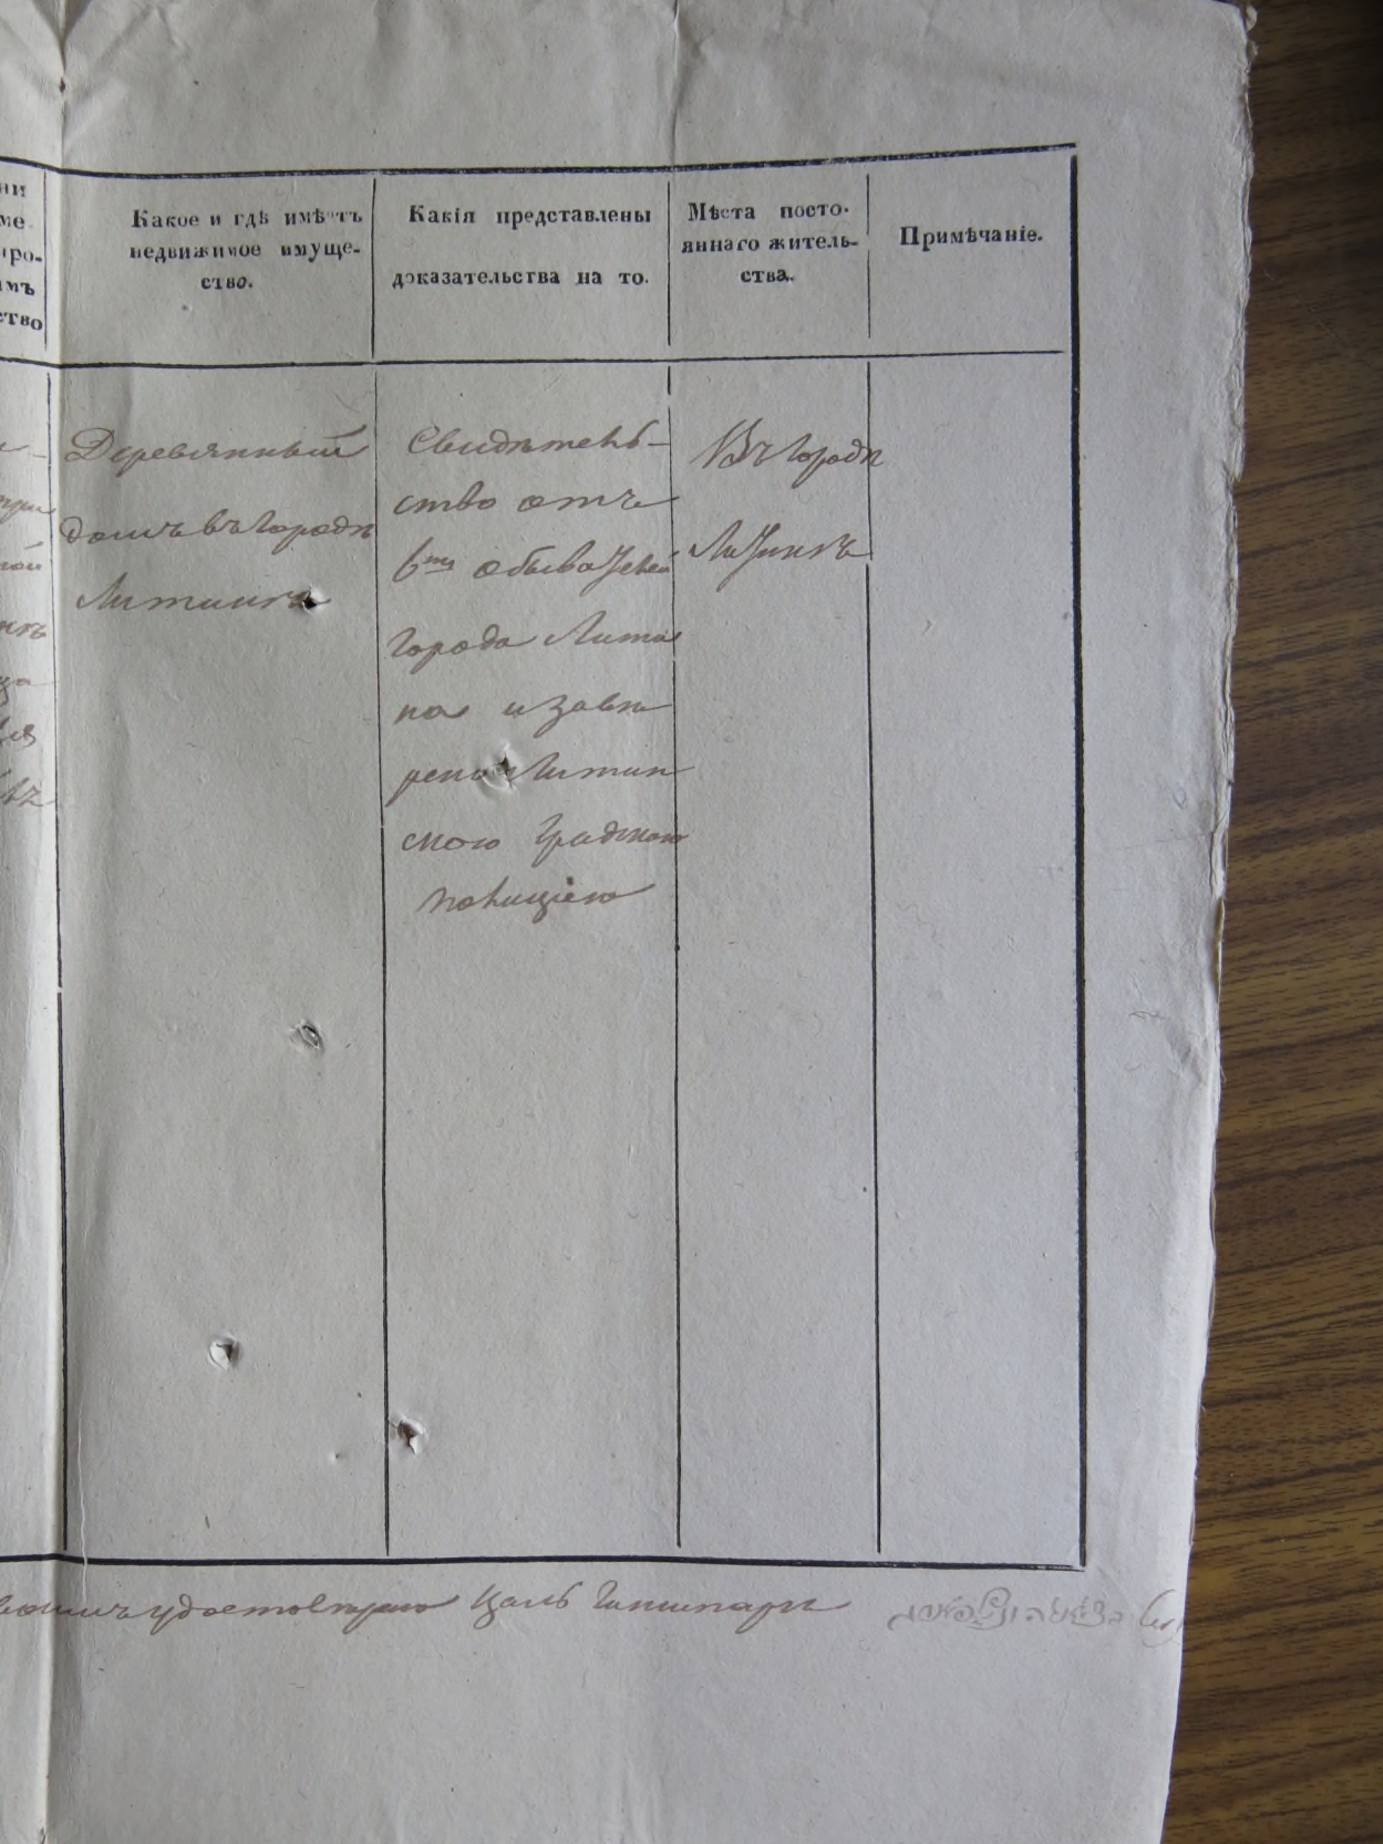 ни
ме-
про-
имъ
ство
Какое и гдѣ имѣетъ
недвижимое имуще-
ство.
Какія представлены
доказательства на то.
Мѣста посто-
яннаго житель-
ства.
Примѣчаніе.
Деревянный
домъ въ городѣ
Литинѣ
Свидѣтель-
ство отъ
6ти обывателей
города Лити
на и завѣ
рено Литин
скою Градскою
полиціею
Въ городѣ
Литинѣ
удостовѣряю